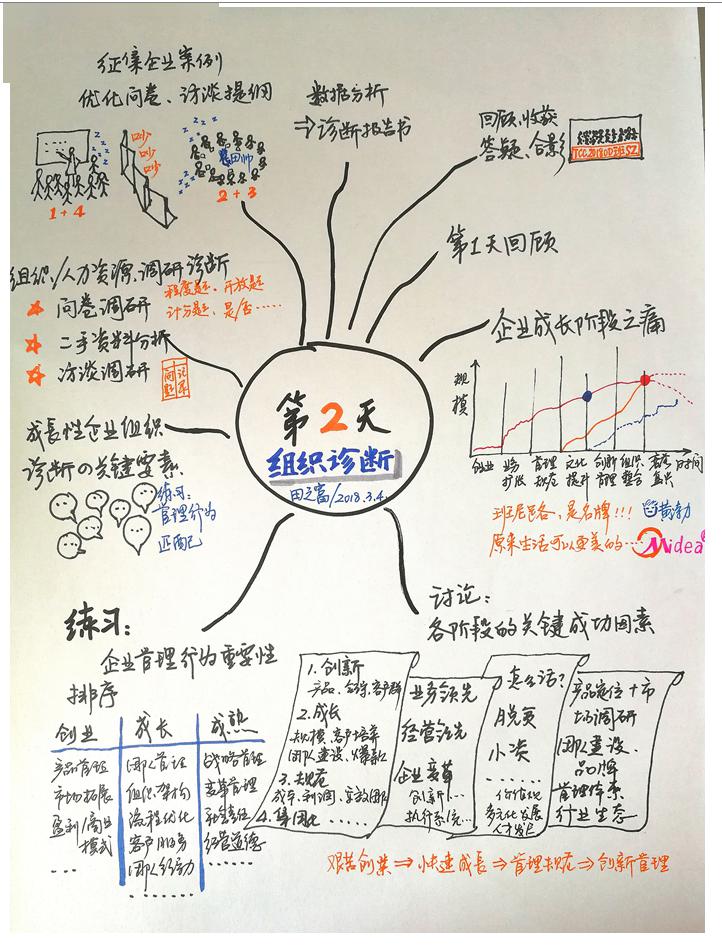 征集企业案例
优化问卷、访谈提纲
吵
吵
吵
1+4
2+3
数据分析
⇒诊断报告书
回顾、收获
答疑、合影
第1天回顾
企业成长阶段之痛
规模
创业
业务扩张
管理规范
文化提升
创新管理
组织整合
时间
班尼路,是名牌!!!
原来生活可以更美的……
Midea
组织/人力资源、调研诊断
★ 问卷调研
程度题、开放题
计分题、是否……
★ 二手资料分析
★ 访谈调研
问题
记录
成长性企业组织
诊断の关键要素
练习:
管理行为
匹配
第2天
组织诊断
田之富/2018.3.4
练习:
企业管理行为重要性
排序
创业
产品管理
市场拓展
盈利/商业
模式
...
成长
团队管理
组织架构
流程优化
客户服务
团队行动
......
成熟
战略管理
变革管理
社会责任
经营道德
...
讨论:
各阶段的关键成功因素
1.创新
产品、客户群
2.成长
规模、客户培养
团队建设、爆款
3.规范
成本、利润、
4.集团化......
业务领先
经营领先
企业变革
创新……
执行系统…
怎么活?
脱更
小资
......
多元化发展
产品定位+市
场调研
团队建设、
品牌
管理体系
行业生态
艰苦创业⇒快速成长⇒管理规范⇒创新管理